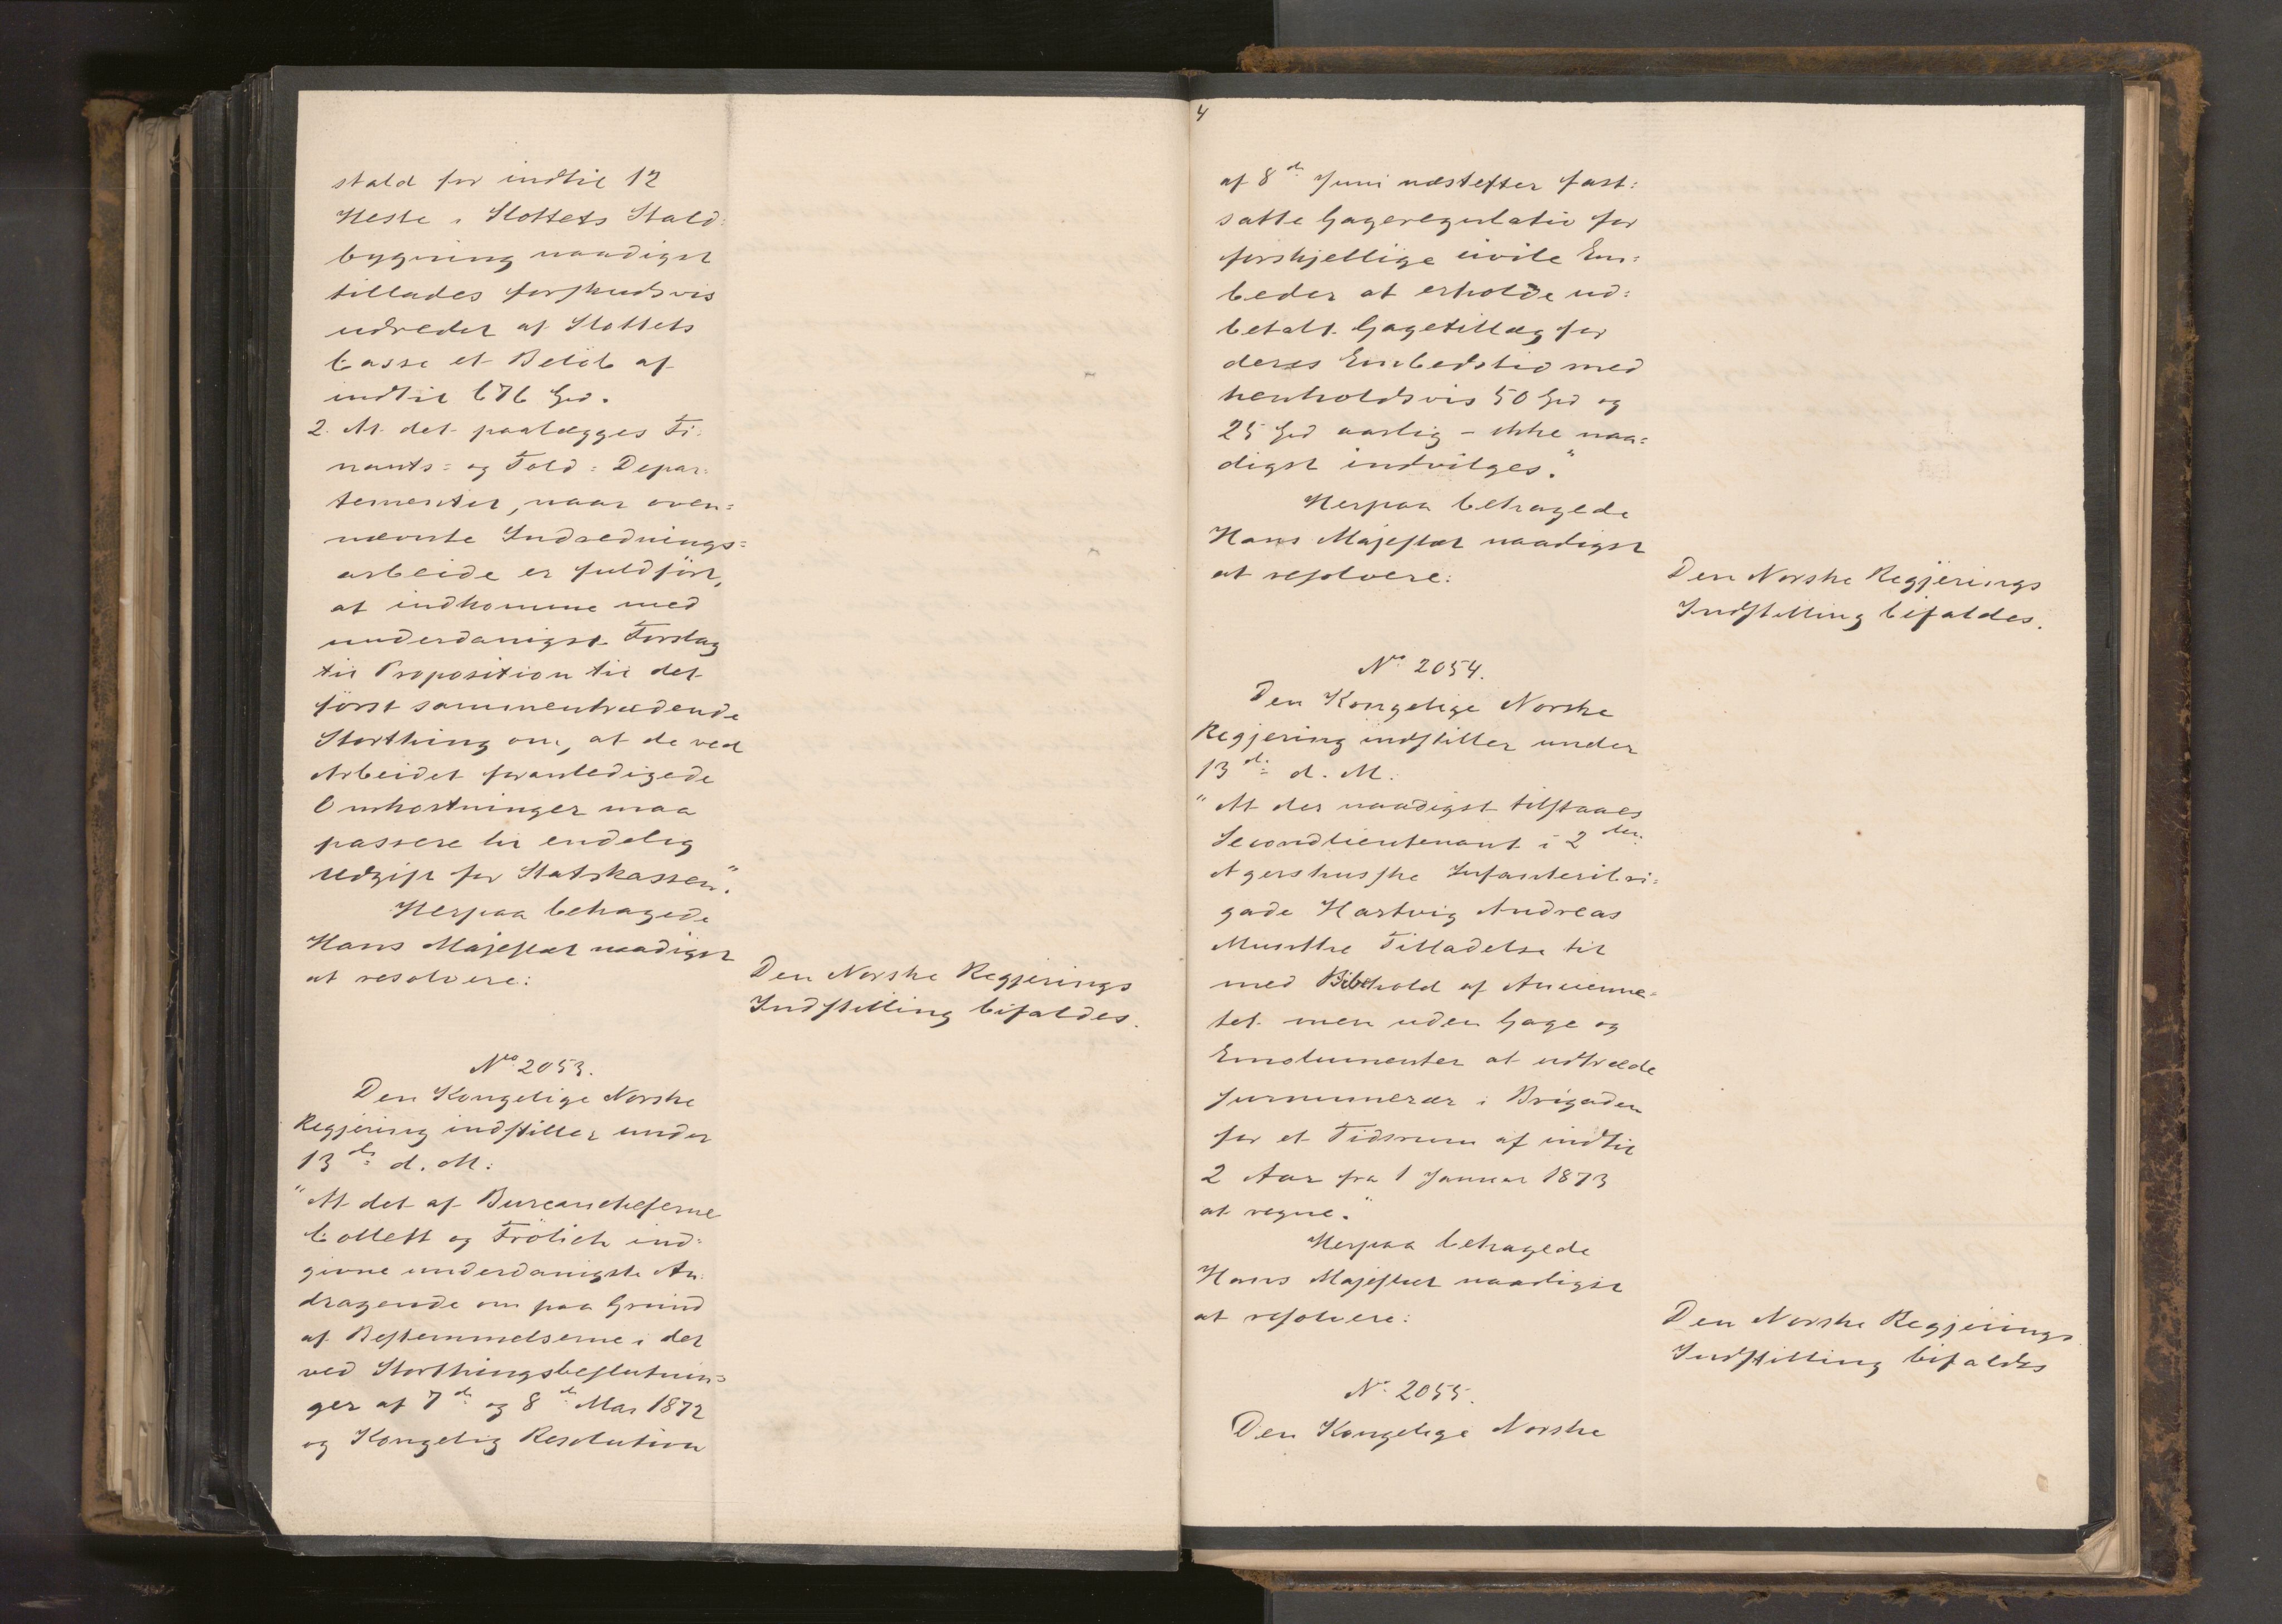 stald for indtil 12
Heste i Slottets Stald=
bygning naadigst
tillades forskudsvis
udredet af Slottets
Casse et Beløb af
indtil 676 Spd.
2. At det paalægges Fi-
nants= og Told=Depar=
tementet, naar oven=
nævnte Indrednings=
arbeide er fuldført,
at indkomme med
underdanigst Forslag
til Proposition til det
først sammentrædende
Storthing om, at de ved
Arbeidet foranledigede
Omkostninger maa
passere til endelig
Udgift for Statskassen".
Herpaa behagede
Hans Majestæt naadigst
at resolvere:
Den Norske Regjerings
Indstilling bifaldes.
No. 2053.
Den Kongelige Norske
Regjering indstiller under
13de d. M:
"At det af Bureaucheferne
Collett og Frölich ind=
givne underdanigste An=
dragende om paa Grund
af Bestemmelserne i det
ved Storthingsbeslutnin=
ger af 7de og 8de Mai 1872
og Kongelig Resolution
4
af 8de Juni næstefter fast=
satte Gageregulativ for
forskjellige civile Em=
beder at erholde ud=
betalt Gagetillæg for
deres Embedstid med
henholdsvis 50 Spd og
25 Spd aarlig - ikke naa=
digst indvilges."
Herpaa behagede
Hans Majestæt naadigst
at resolvere:
Den Norske Regjerings
Indstilling bifaldes.
No. 2054.
Den Kongelige Norske
Regjering indstiller under
13de d. M.
"At der naadigst tilstaaes
Secondlieutenant i 2den
Agershusske Infanteribri=
gade Hartvig Andreas
Munthe Tilladelse til
med Bibehold af Ancienne=
tet men uden Gage og
Emolumenter at udtræde
surnumerær i Brigaden
for et Tidsrum af indtil
2 Aar fra 1 Januar 1873
at regne."
Herpaa behagede
Hans Majestæt naadigst
at resolvere:
Den Norske Regjerings
Indstilling bifaldes
No. 2055.
Den Kongelige Norske